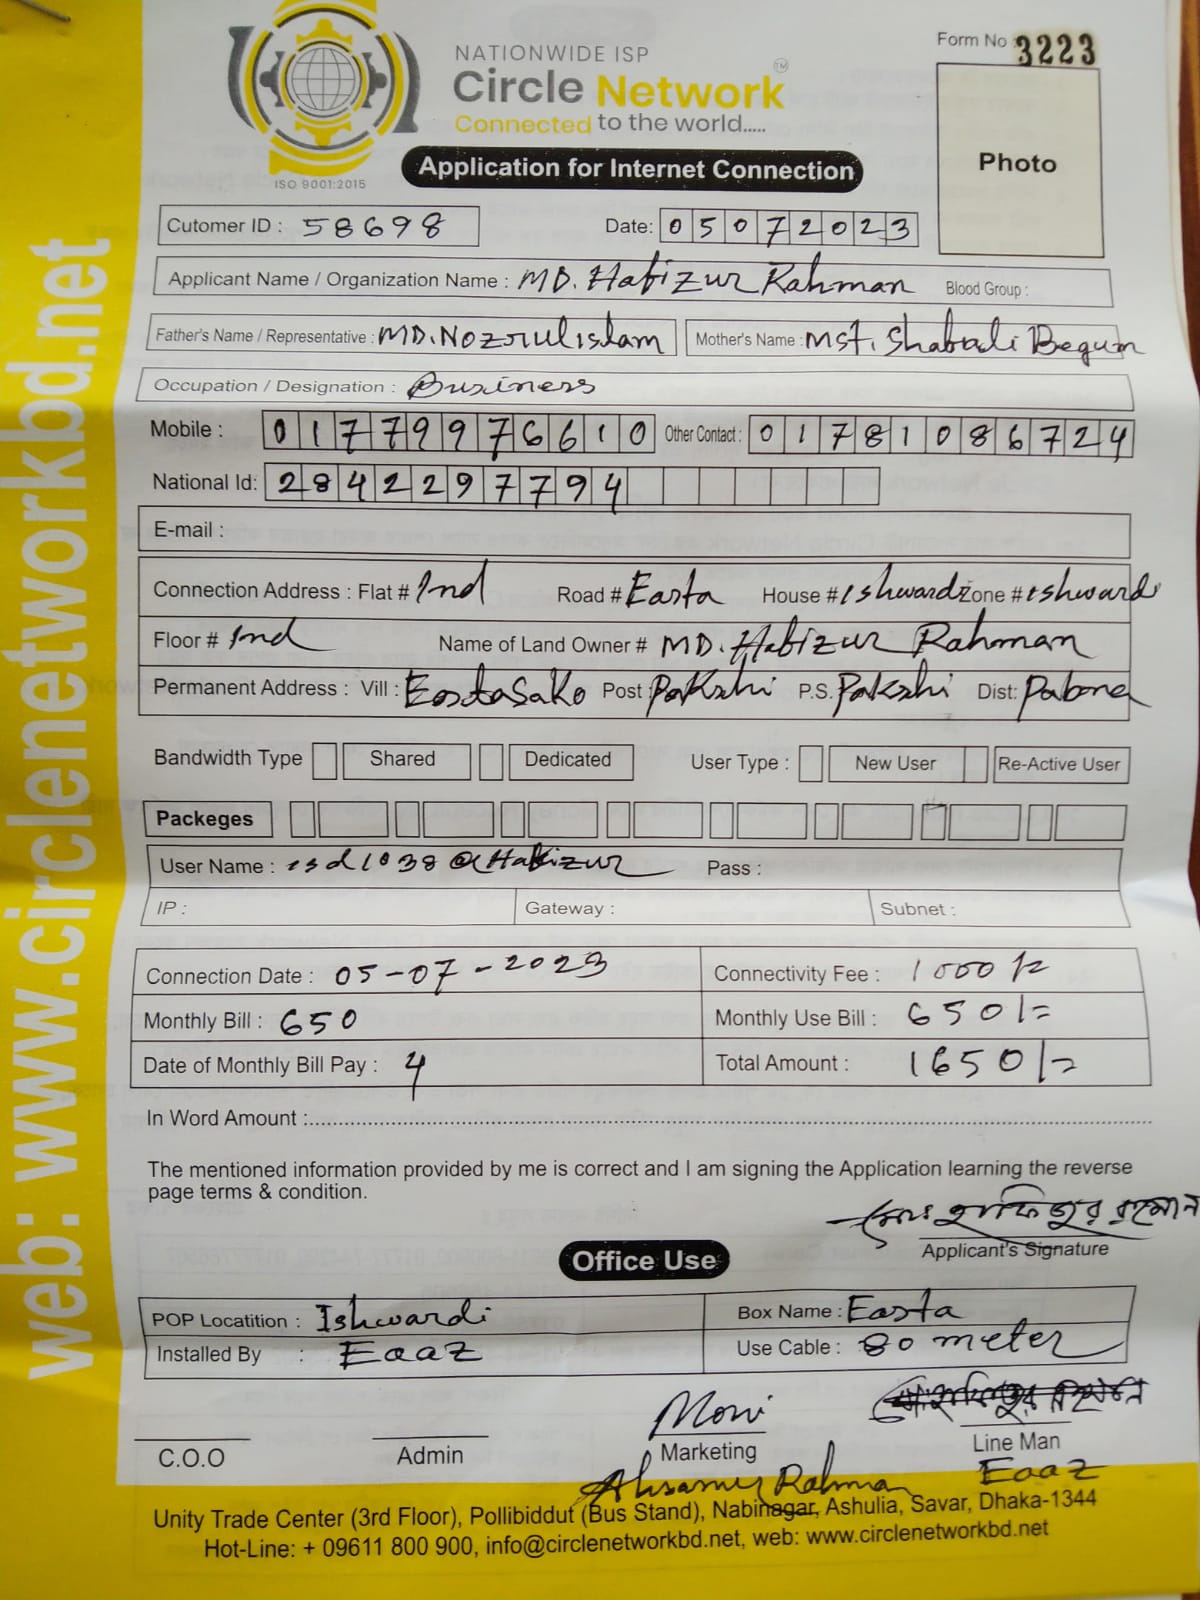 NATIONWIDE ISP
Circle Network TM
Connected to the world.....
ISO 9001:2015
Form No : 3223
Photo
Application for Internet Connection
Cutomer ID : 58698 Date: 05072023
Applicant Name / Organization Name : MD. Hafizur Rahman Blood Group :
Father's Name / Representative : MD. Nozrul islam Mother's Name : Mst. Shabali Begum
Occupation / Designation : Business
Mobile : 01779976610 Other Contact : 01781086724
National Id: 2842297794
E-mail :
Connection Address : Flat # 1nd Road # Easta House # Ishwardi Zone # Ishwardi
Floor # 1nd Name of Land Owner # MD. Hafizur Rahman
Permanent Address : Vill : EastaSako Post : Pakshi P.S. Pakshi Dist: Pabna
Bandwidth Type Shared Dedicated User Type : New User Re-Active User
Packeges
User Name : isd1038@Hafizur Pass :
IP : Gateway : Subnet :
Connection Date : 05-07-2023 Connectivity Fee : 1000/=
Monthly Bill : 650 Monthly Use Bill : 650/=
Date of Monthly Bill Pay : 4 Total Amount : 1650/=
In Word Amount :
The mentioned information provided by me is correct and I am signing the Application learning the reverse
page terms & condition.
মোঃ হাফিজুর রহমান
Applicant's Signature
Office Use
POP Locatition : Ishwardi Box Name : Easta
Installed By : Eaaz Use Cable : 80 meter
Moni
C.O.O Admin Marketing Line Man
Rahman Eaaz
Unity Trade Center (3rd Floor), Pollibiddut (Bus Stand), Nabinagar, Ashulia, Savar, Dhaka-1344
Hot-Line: + 09611 800 900, info@circlenetworkbd.net, web: www.circlenetworkbd.net
web: www.circlenetworkbd.net